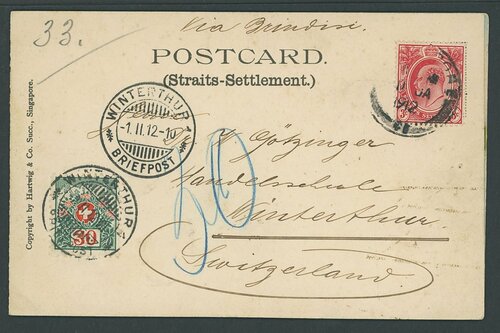 33.
Via Brindisi.
POSTCARD.
(Straits-Settlement.)
JA
1912
WINTERTHUR 1
-1.II.12-10
BRIEFPOST
Götzinger
Handelsschule
Winterthur
Switzerland
30
WINTERTHUR
30
Copyright by Hartwig & Co. Succ., Singapore.